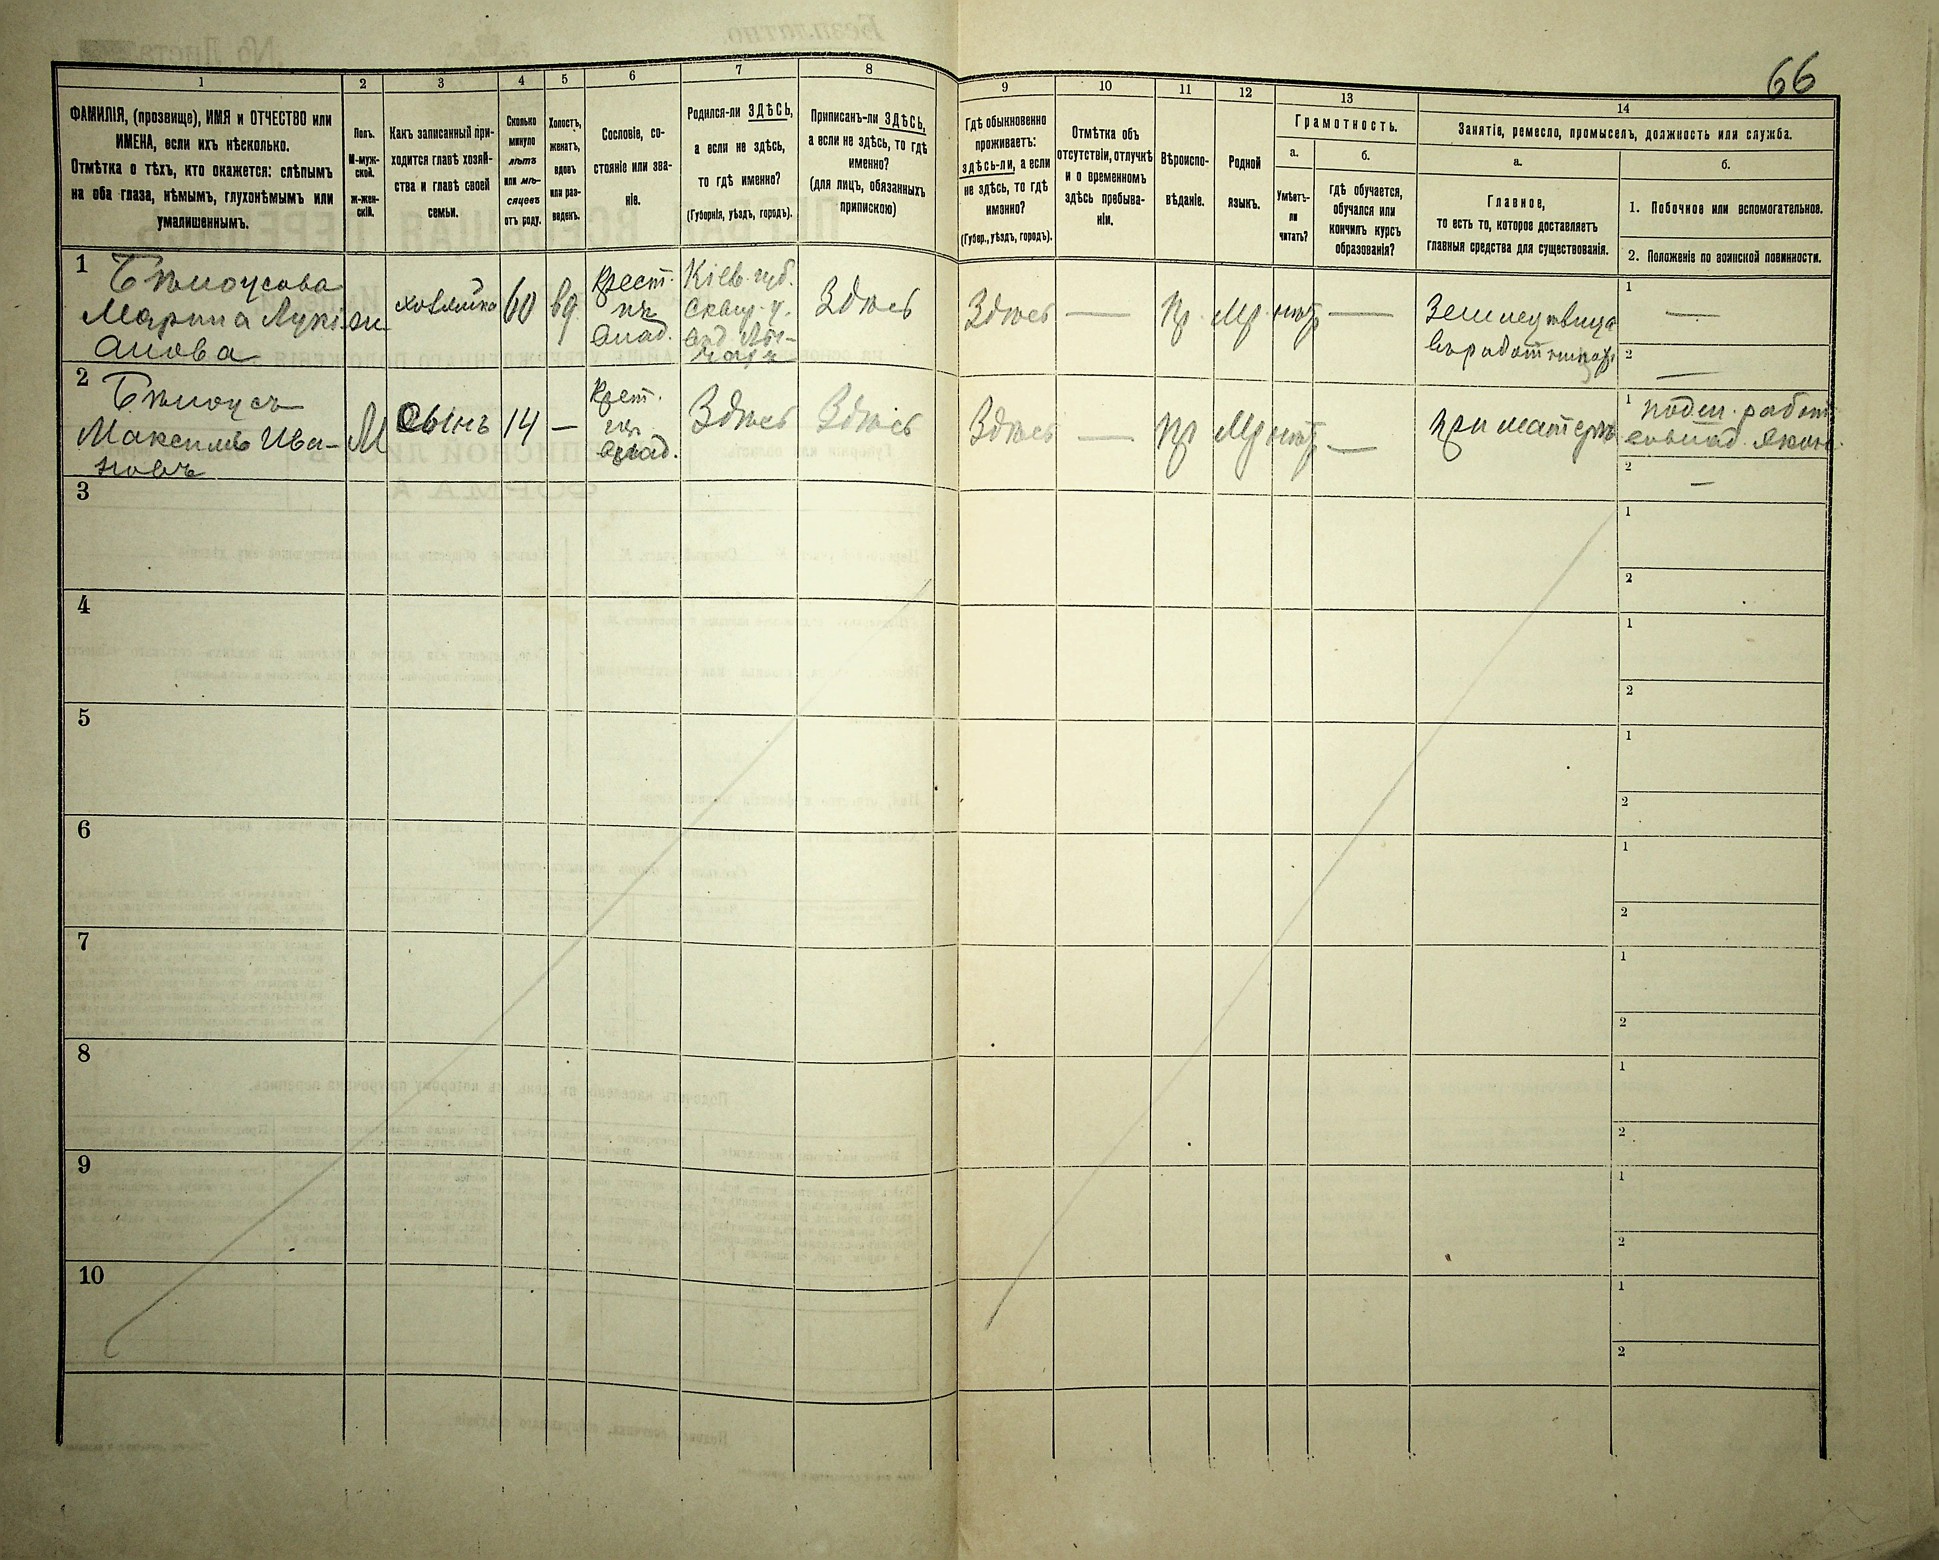 66
1
2
3
4
5
6
7
8
9
10
11
12
13
14
ФАМИЛІЯ, (прозвище), ИМЯ и ОТЧЕСТВО или
ИМЕНА, если ихъ нѣсколько.
Отмѣтка о тѣхъ, кто окажется: слѣпымъ
на оба глаза, нѣмымъ, глухонѣмымъ или
умалишеннымъ.
Полъ.
М-муж-
ской.
ж-жен-
скій.
Какъ записанный при-
ходится главѣ хозяй-
ства и главѣ своей
семьи.
Сколько
минуло
лѣтъ
или мѣ-
сяцевъ
отъ роду.
Холостъ,
женатъ,
вдовъ
или раз-
веденъ.
Сословіе, со-
стояніе или зва-
ніе.
Родился-ли ЗДѢСЬ,
а если не здѣсь,
то гдѣ именно?
(Губернія, уѣздъ, городъ).
Приписанъ-ли ЗДѢСЬ,
а если не здѣсь, то гдѣ
именно?
(для лицъ, обязанныхъ
припискою)
Гдѣ обыкновенно
проживаетъ:
здѣсь-ли, а если
не здѣсь, то гдѣ
именно?
(Губер., уѣздъ, городъ).
Отмѣтка объ
отсутствіи, отлучкѣ
и о временномъ
здѣсь пребыва-
ніи.
Вѣроиспо-
вѣданіе.
Родной
языкъ.
Грамотность.
а.
Умѣетъ-
ли
читать?
б.
гдѣ обучается,
обучался или
кончилъ курсъ
образованія?
Занятіе, ремесло, промыселъ, должность или служба.
а.
Главное,
то есть то, которое доставляетъ
главныя средства для существованія.
б.
1. Побочное или вспомогательное.
2. Положеніе по воинской повинности.
1
Бѣлоусова
Марина Лукі
анова
ж
хозяйка
60
вд
Крест.
изъ
влад.
Кіев. губ.
Сквир. у.
Здѣсь
Здѣсь
—
Пр.
Мр.
нѣтъ
—
1
—
2
—
2
Бѣлоусъ
Максимъ Ива-
новъ
М
Сынъ
14
—
Крест.
изъ
влад.
Здѣсь
Здѣсь
Здѣсь
—
Пр
Мр
нѣтъ
—
При матери
1
поден. работ
2
—
3
1
2
4
1
2
5
1
2
6
1
2
7
1
2
8
1
2
9
1
2
10
1
2